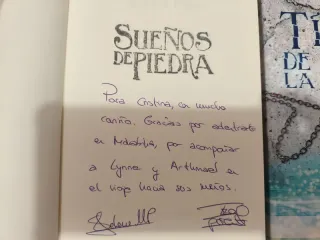 SUEÑOS
DE PIEDRA
Para Cristina, con mucho
cariño. Gracias por adentrarte
en Marabilia, por acompañar
a Lynne y Arthmael en
el viaje hacia sus sueños.
DE
LA